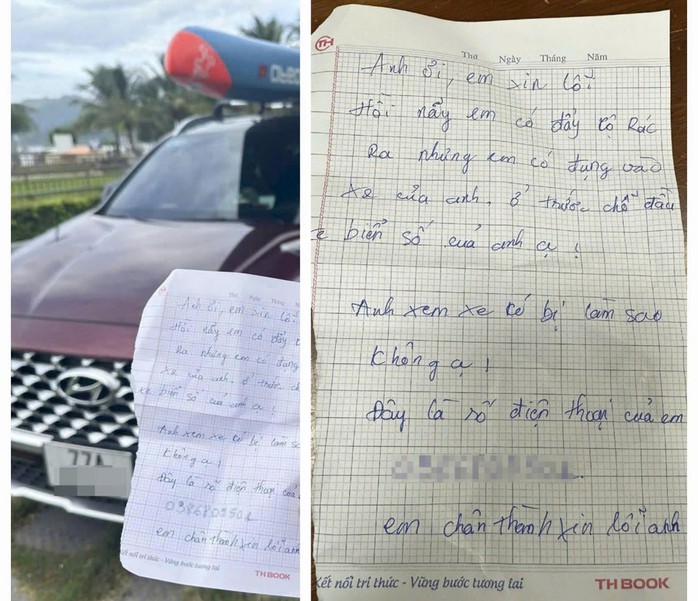 77A
TH
Thứ Ngày Tháng
Anh ơi, em xin lỗi.
Hồi nẩy em có đẩy
Ra nhưng em có đụng
xe của anh. ở trước
biển số của anh ạ!
Anh xem xe có bị làm sao
Không ạ!
Đây là số điện thoại của
em chân thành xin lỗi anh
Kết nối tri thức - Vững bước tương lai
TH BOOK
TH
Thứ Ngày Tháng Năm
Anh ơi, em xin lỗi.
Hồi nẩy em có đẩy cộ Rác
Ra nhưng em có đụng vào
xe của anh. ở trước chỗ đầu
xe biển số của anh ạ!
Anh xem xe có bị làm sao
Không ạ!
Đây là số điện thoại của em
em chân thành xin lỗi anh
Kết nối tri thức - Vững bước tương lai
TH BOOK